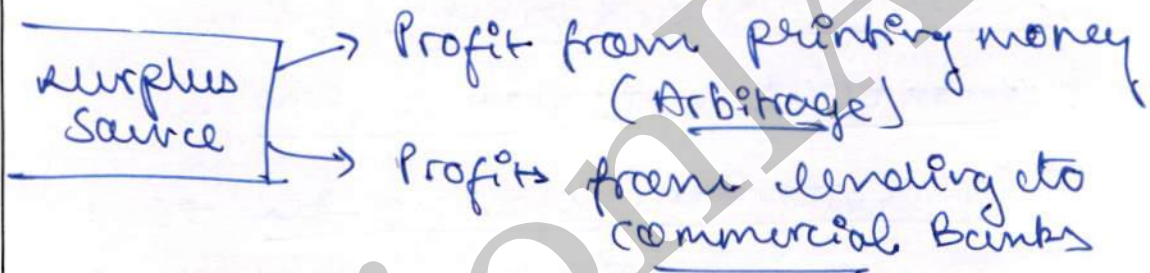 Surplus
Source
Profit from printing money
(Arbitrage)
Profits from lending to
commercial Banks